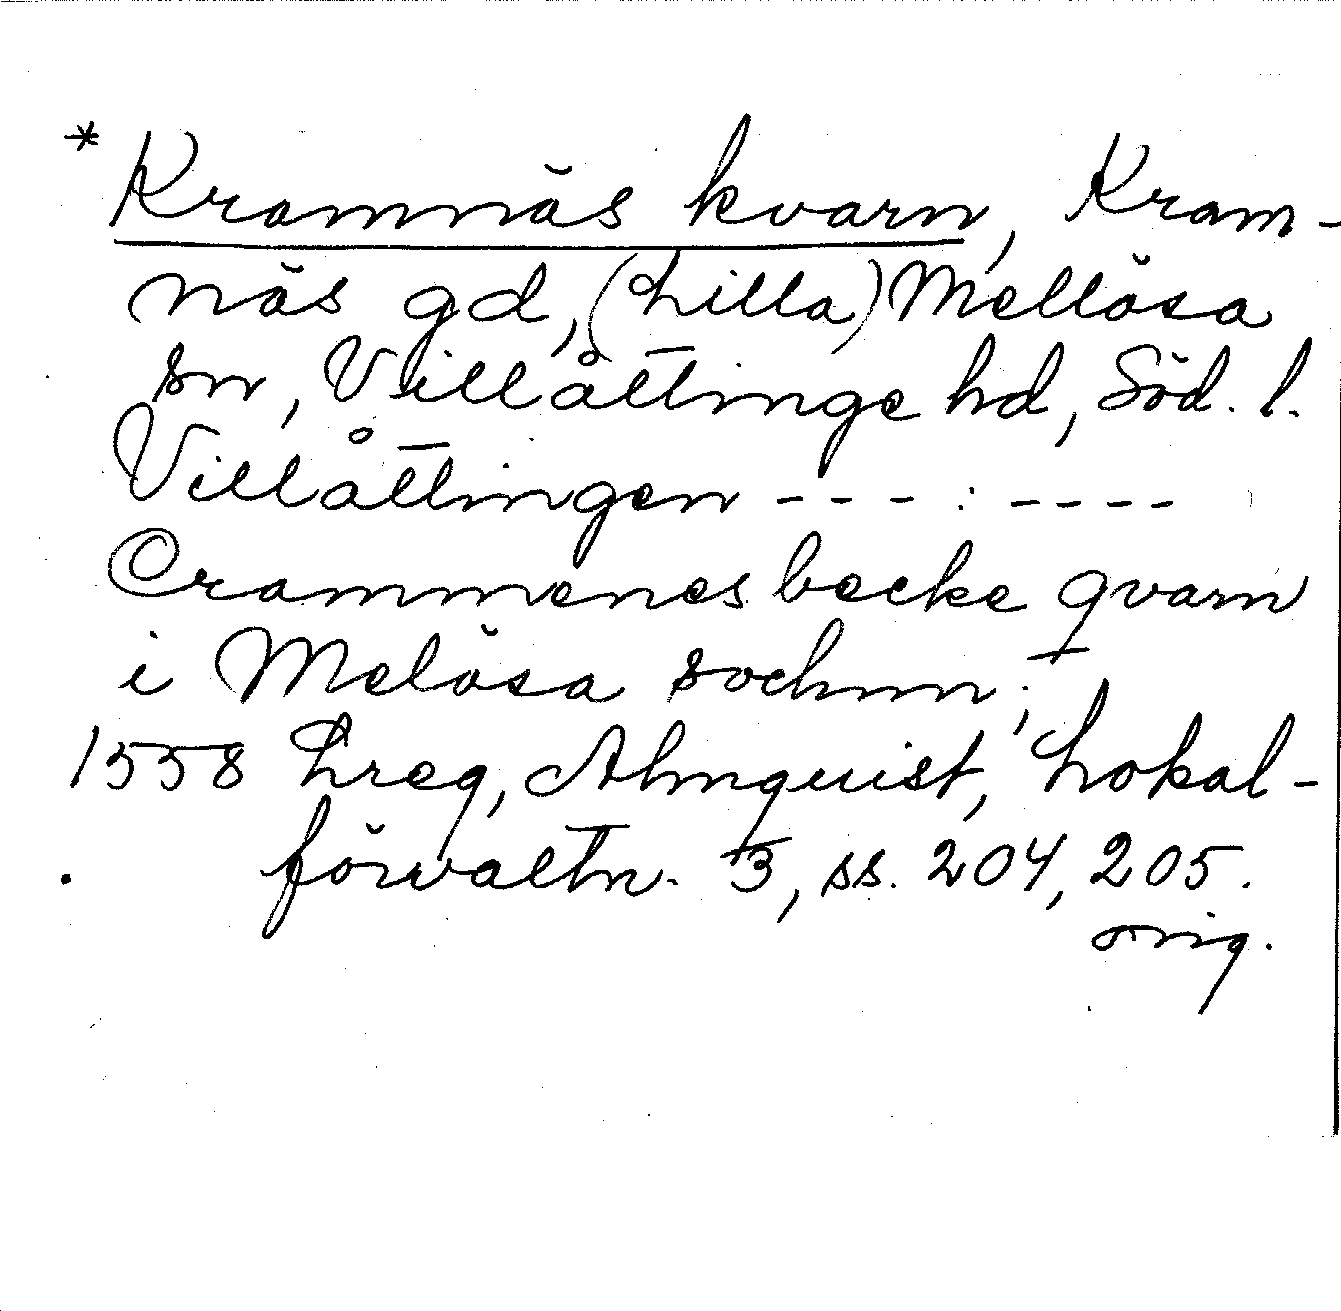 * Kramnäs kvarn, Kram-
näs gd, (Lilla) Mellösa
sn, Villåttinge hd, Söd. l.
Villåttingen - - - : - - - -
Crammenes becke qvarn
i Melösa sochnn;
1558 Lreg, Almquist, Lokal-
förvaltn. 3, ss. 204, 205.
orig.